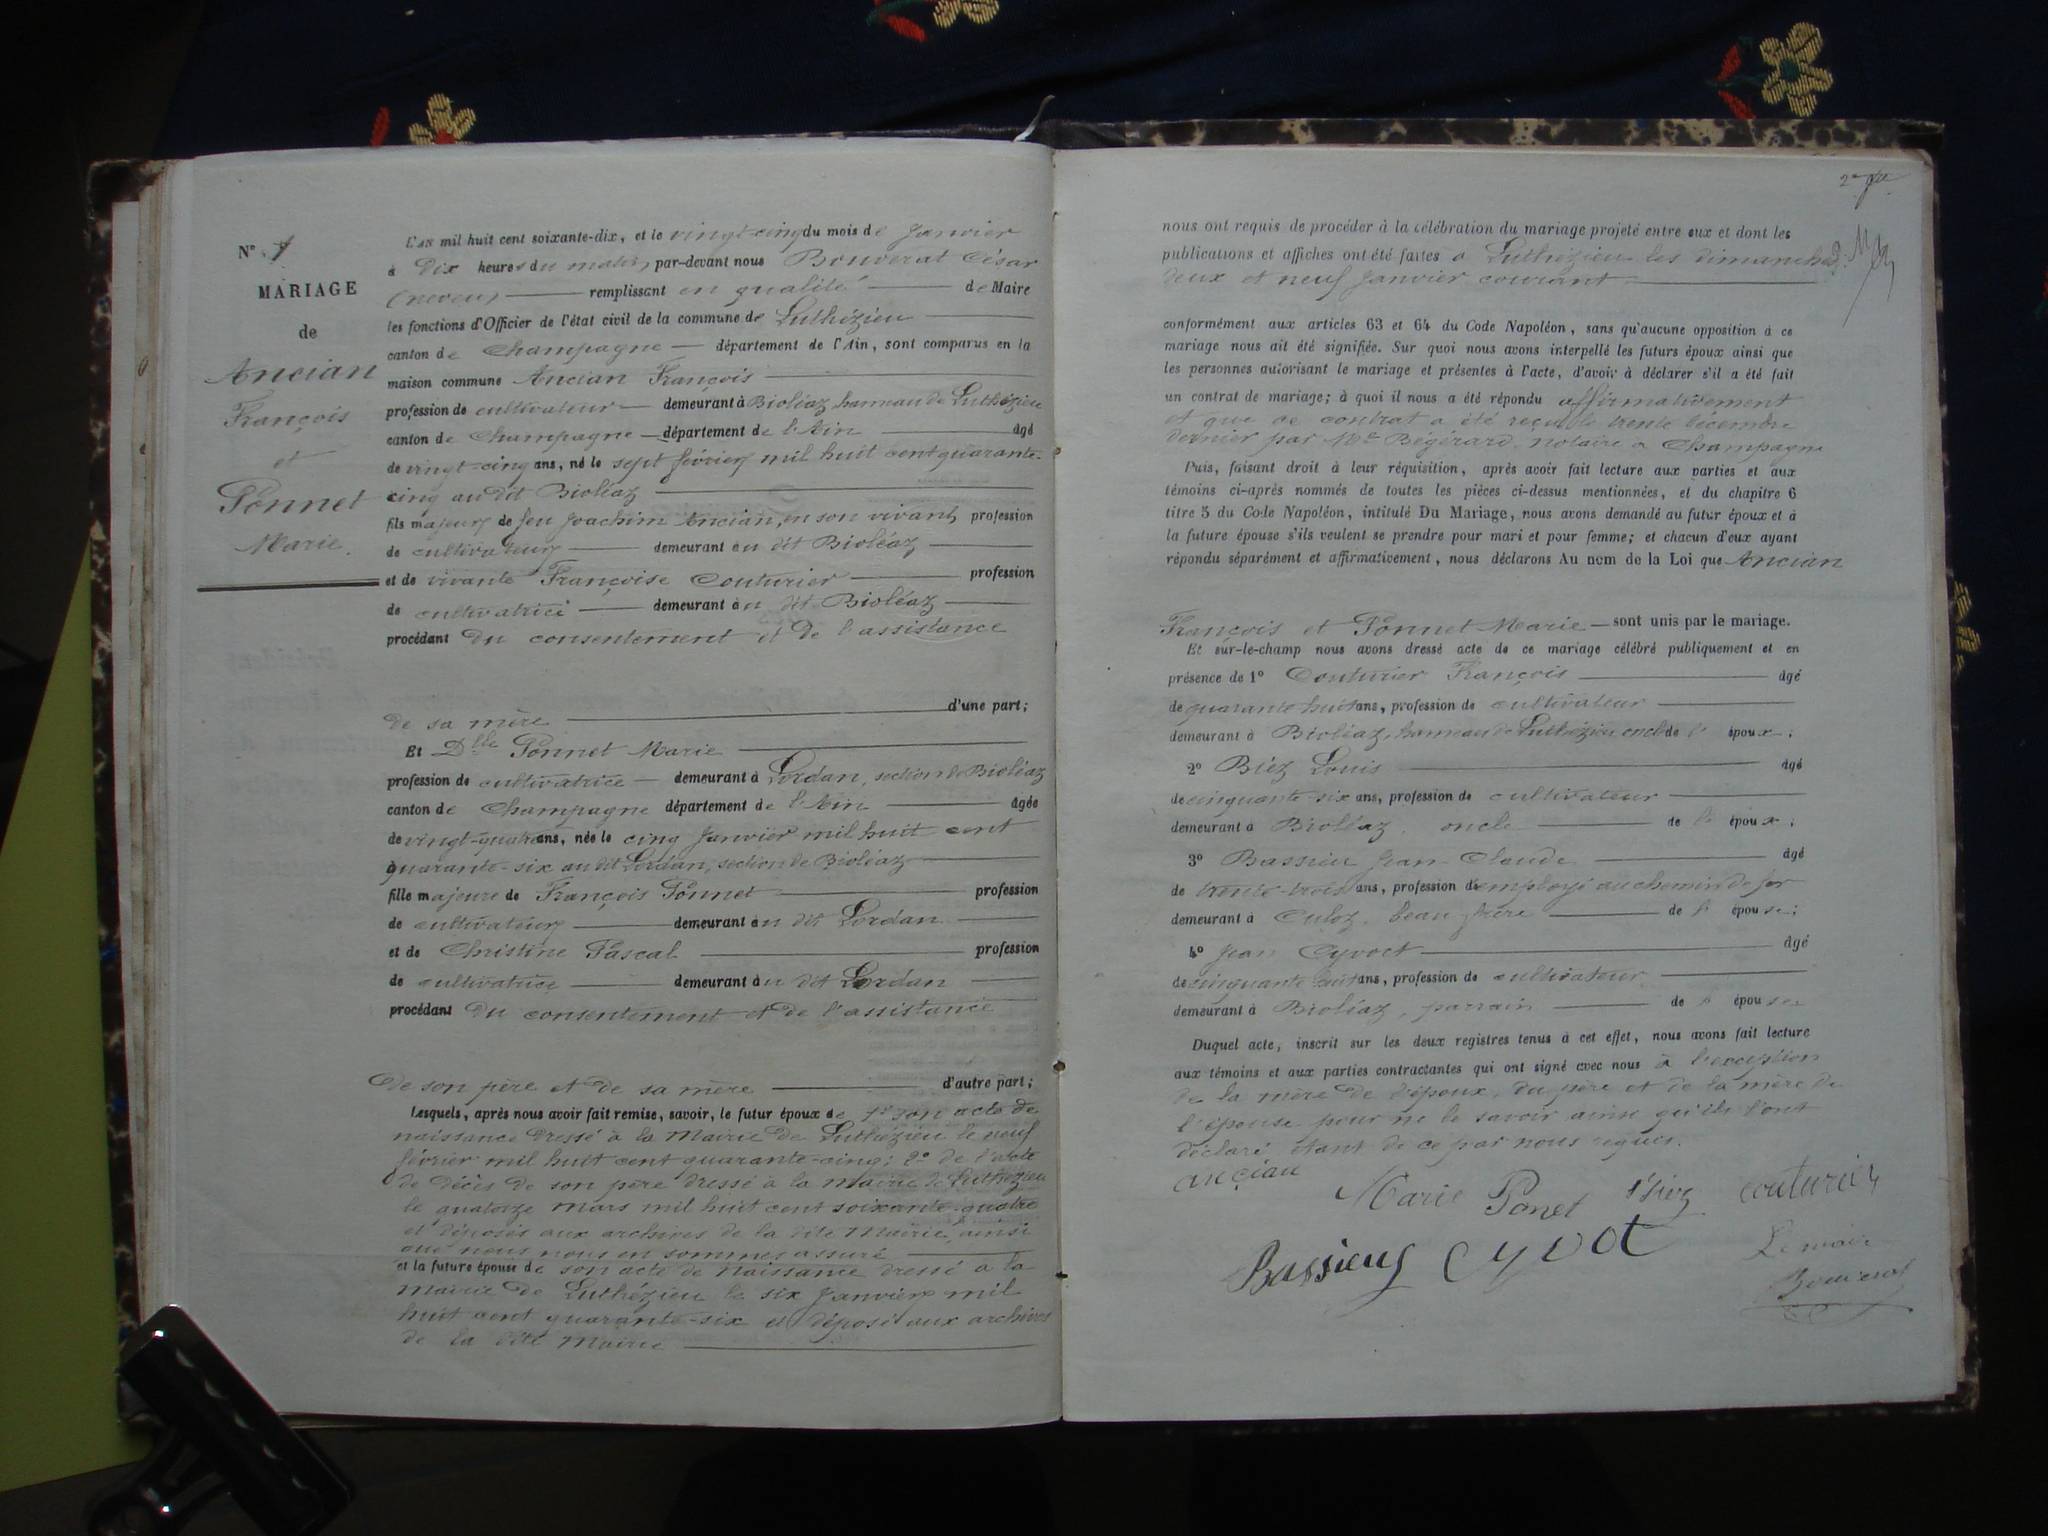 N° 1
MARIAGE
de
Ancian
François
et
Ponnet
Marie.
L'AN mil huit cent soixante-dix, et le vingt-cinq du mois de Janvier
à dix heures du matin, par-devant nous Bouverat César
(neveu) remplissant en qualité de Maire
les fonctions d'Officier de l'état civil de la commune de Luthézieu
canton de Champagne département de l'Ain, sont comparus en la
maison commune Ancian François
profession de cultivateur demeurant à Bioléaz, hameau de Luthézieu
canton de Champagne département de l'Ain âgé
de vingt-cinq ans, né le sept février mil huit cent quarante-
cinq au dit Bioléaz
fils majeur de feu Joachim Ancian, en son vivant, profession
de cultivateur demeurant au dit Bioléaz
et de vivante Françoise Couturier profession
de cultivatrice demeurant au dit Bioléaz
procédant du consentement et de l'assistance
de sa mère d'une part;
Et Dlle Ponnet Marie
profession de cultivatrice demeurant à Lordan, section de Bioléaz
canton de Champagne département de l'Ain âgée
de vingt-quatre ans, née le cinq Janvier mil huit cent
quarante-six au dit Lordan, section de Bioléaz
fille majeure de François Ponnet profession
de cultivateur demeurant au dit Lordan
et de Christine Pascal profession
de cultivatrice demeurant au dit Lordan
procédant du consentement et de l'assistance
de son père et de sa mère d'autre part;
Lesquels, après nous avoir fait remise, savoir, le futur époux de 1° son acte de
naissance dressé à la Mairie de Luthézieu le neuf
février mil huit cent quarante-cinq; 2° de l'acte
de décès de son père dressé à la mairie de Luthézieu
le quatorze mars mil huit cent soixante-quatre
et déposés aux archives de la dite Mairie, ainsi
que nous nous en sommes assuré
et la future épouse de son acte de naissance dressé à la
mairie de Luthézieu le six Janvier mil
huit cent quarante-six et déposé aux archives
de la dite Mairie
nous ont requis de procéder à la célébration du mariage projeté entre eux et dont les
publications et affiches ont été faites à Luthézieu les dimanches
deux et neuf Janvier courant
conformément aux articles 63 et 64 du Code Napoléon, sans qu'aucune opposition à ce
mariage nous ait été signifiée. Sur quoi nous avons interpellé les futurs époux ainsi que
les personnes autorisant le mariage et présentes à l'acte, d'avoir à déclarer s'il a été fait
un contrat de mariage; à quoi il nous a été répondu affirmativement
et que ce contrat a été reçu le trente décembre
dernier par Me Bégérard, notaire à Champagne
Puis, faisant droit à leur réquisition, après avoir fait lecture aux parties et aux
témoins ci-après nommés de toutes les pièces ci-dessus mentionnées, et du chapitre 6
titre 5 du Code Napoléon, intitulé Du Mariage, nous avons demandé au futur époux et à
la future épouse s'ils veulent se prendre pour mari et pour femme; et chacun d'eux ayant
répondu séparément et affirmativement, nous déclarons Au nom de la Loi que Ancian
François et Ponnet Marie sont unis par le mariage.
Et sur-le-champ nous avons dressé acte de ce mariage célébré publiquement et en
présence de 1° Couturier François âgé
de quarante-huit ans, profession de cultivateur
demeurant à Bioléaz, hameau de Luthézieu oncle de l'époux;
2° Biez Louis âgé
de cinquante-six ans, profession de cultivateur
demeurant à Bioléaz, oncle de l'époux;
3° Bassieu Jean-Claude âgé
de trente-trois ans, profession d'employé au chemin de fer
demeurant à Culoz, beau-frère de l'épouse;
4° Jean Cyvoct âgé
de cinquante huit ans, profession de cultivateur
demeurant à Bioléaz, parrain de l'épouse
Duquel acte, inscrit sur les deux registres tenus à cet effet, nous avons fait lecture
aux témoins et aux parties contractantes qui ont signé avec nous à l'exception
de la mère de l'époux, du père et de la mère de
l'épouse pour ne le savoir ainsi qu'ils l'ont
déclaré, étant de ce par nous requis.
ancian
Marie Ponet Biez couturier
Bassieux Cyvot
Le maire
Bouverat